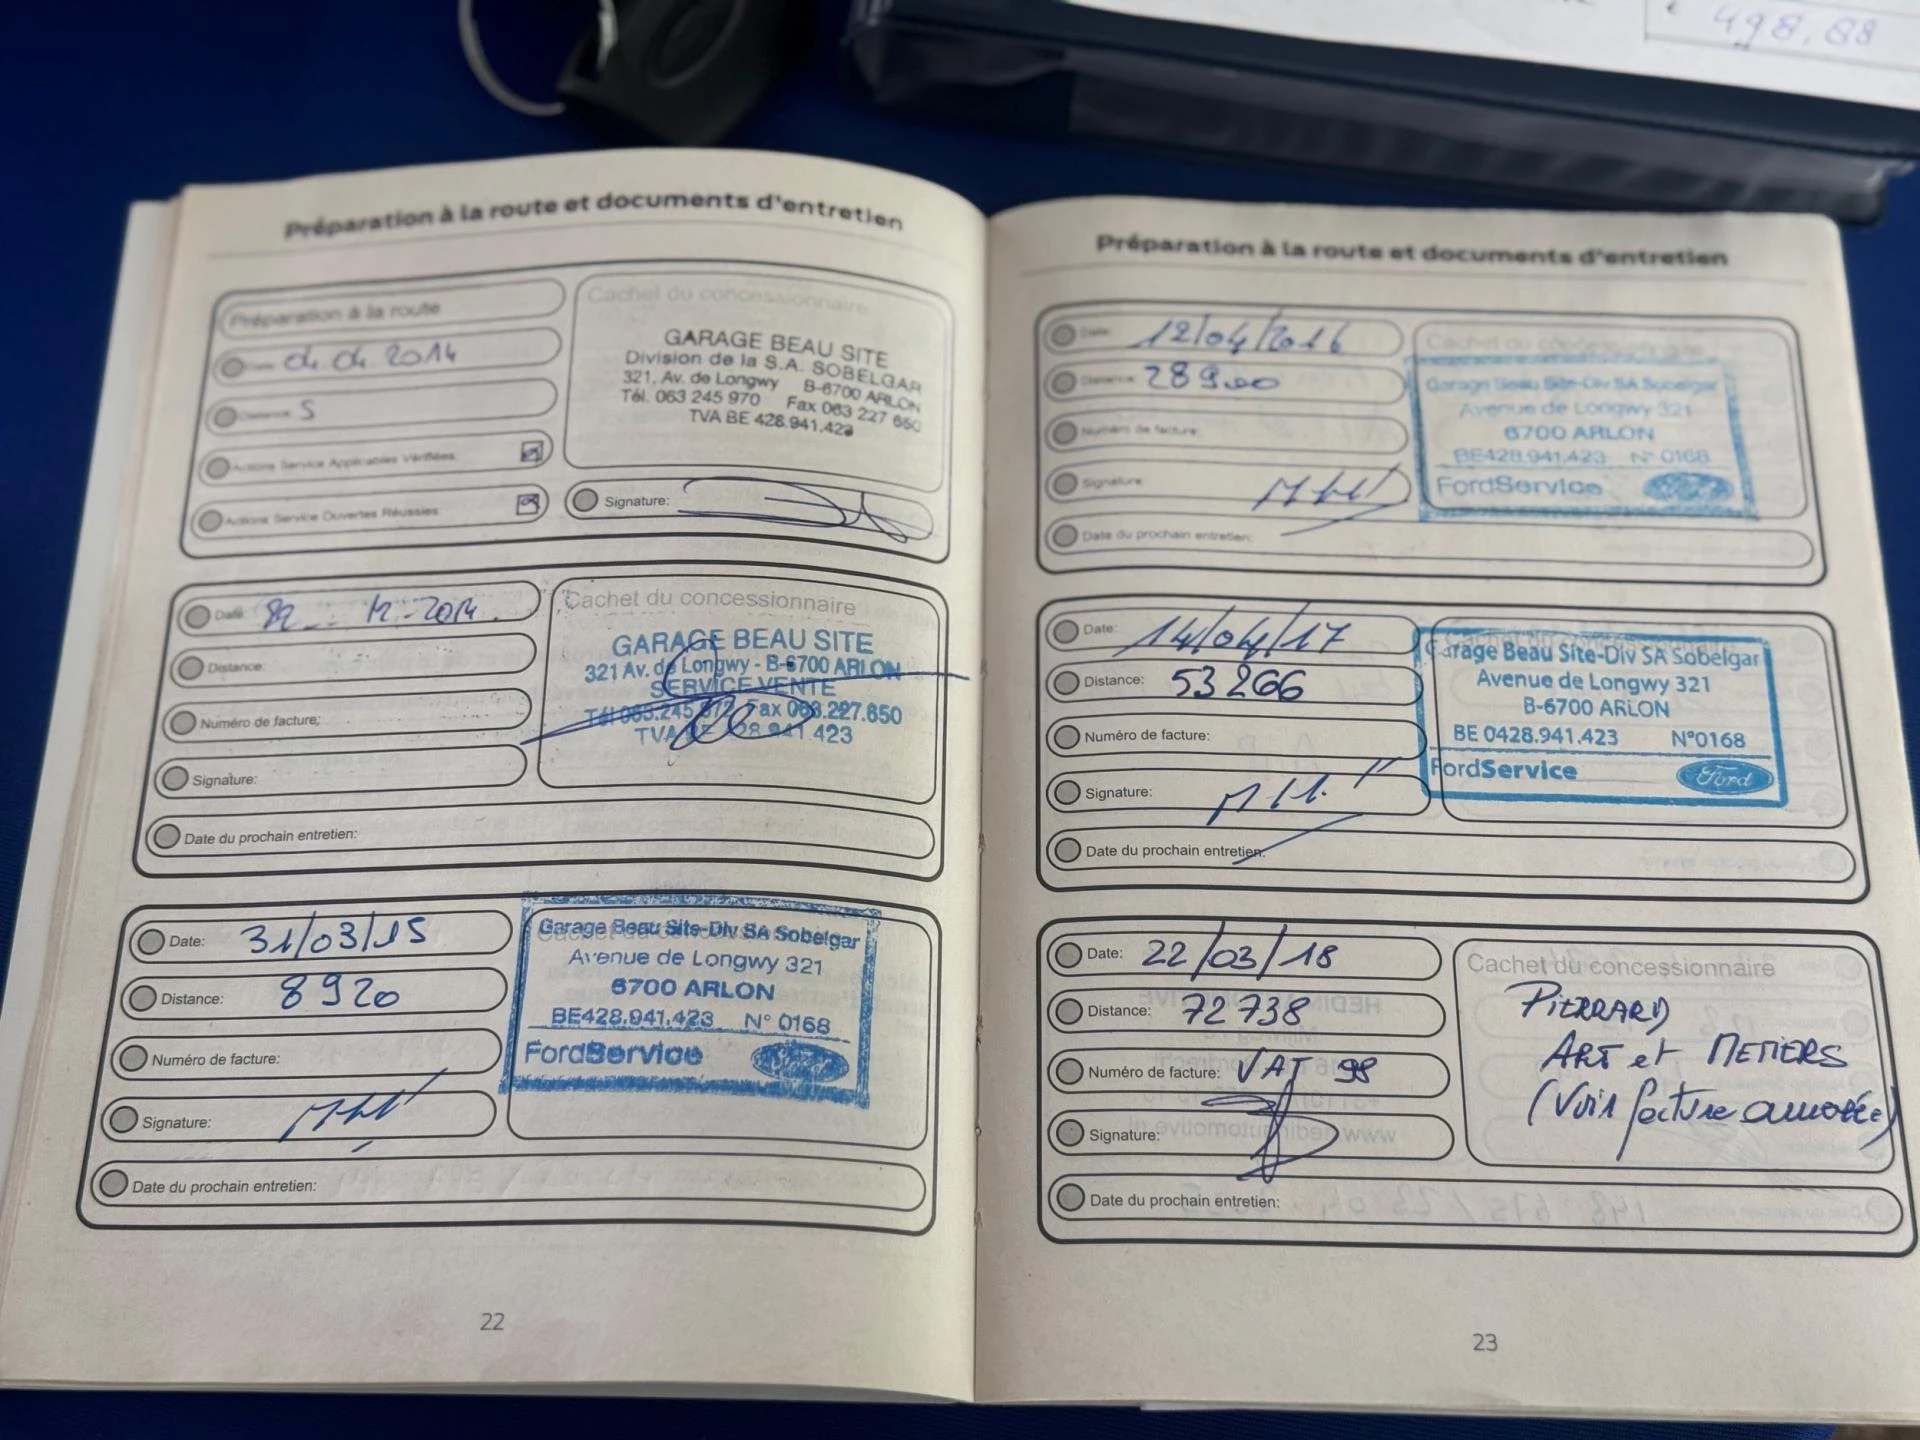 498,88
Préparation à la route et documents d'entretien
Préparation à la route
Date: 04.04.2014
Distance: 5
Actions Service Applicables Vérifiées:
Actions Service Ouvertes Réussies:
Cachet du concessionnaire
GARAGE BEAU SITE
Division de la S.A. SOBELGAR
321, Av. de Longwy B-6700 ARLON
Tél. 063 245 970 Fax 063 227 650
TVA BE 428.941.423
Signature:
Date: 12-2014
Distance:
Numéro de facture:
Signature:
Date du prochain entretien:
Cachet du concessionnaire
GARAGE BEAU SITE
321 Av. de Longwy - B-6700 ARLON
SERVICE VENTE
Fax 063.227.650
TVA BE 428.941.423
Date: 31/03/15
Distance: 8920
Numéro de facture:
Signature:
Date du prochain entretien:
Cachet du concessionnaire
Garage Beau Site-Div SA Sobelgar
Avenue de Longwy 321
6700 ARLON
BE428.941.423 N° 0168
FordService
22
Préparation à la route et documents d'entretien
Date: 12/04/2016
Distance: 28900
Numéro de facture:
Signature:
Date du prochain entretien:
Cachet du concessionnaire
Garage Beau Site-Div SA Sobelgar
Avenue de Longwy 321
6700 ARLON
BE428.941.423 N° 0168
FordService
Date: 14/04/17
Distance: 53266
Numéro de facture:
Signature:
Date du prochain entretien:
Cachet du concessionnaire
Garage Beau Site-Div SA Sobelgar
Avenue de Longwy 321
B-6700 ARLON
BE 0428.941.423 N°0168
FordService Ford
Date: 22/03/18
Distance: 72738
Numéro de facture: VAT 98
Signature:
Date du prochain entretien:
Cachet du concessionnaire
PIERRARD
ART et METIERS
(Voir facture annotée)
23